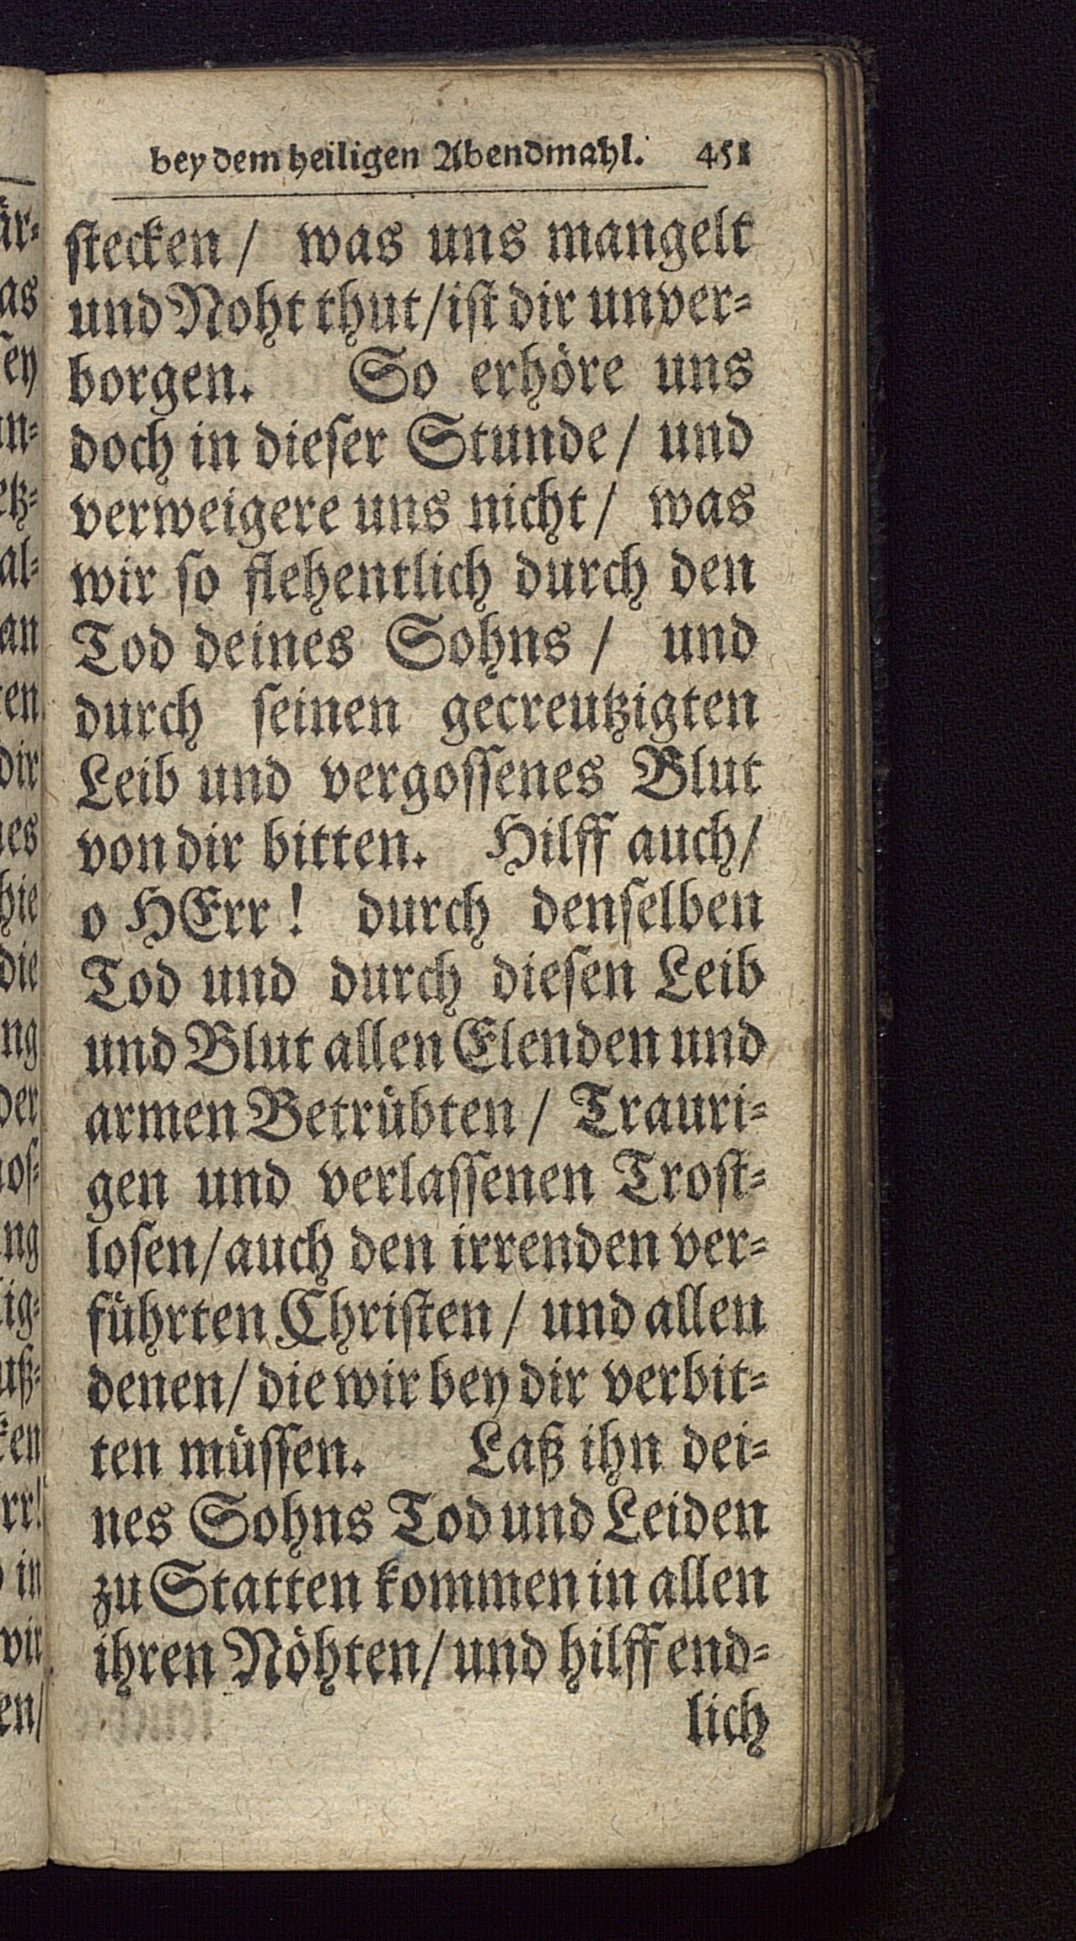 bey dem heiligen Abendmahl. 451
ſtecken / was uns mangelt
und Noht thut / iſt dir unver⸗
borgen. So erhöre uns
doch in dieſer Stunde / und
verweigere uns nicht / was
wir ſo flehentlich durch den
Tod deines Sohns / und
durch ſeinen gecreutzigten
Leib und vergoſſenes Blut
von dir bitten. Hilff auch /
o HErr! durch denſelben
Tod und durch dieſen Leib
und Blut allen Elenden und
armen Betrübten / Trauri⸗
gen und verlaſſenen Troſt⸗
loſen / auch den irrenden ver⸗
führten Chriſten / und allen
denen / die wir bey dir verbit⸗
ten müſſen. Laß ihn dei⸗
nes Sohns Tod und Leiden
zu Statten kommen in allen
ihren Nöhten / und hilff end⸗
lich